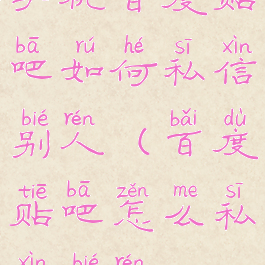 bā rú hé sī xìn
吧如何私信
bié rén bǎi dù
别人（百度
tiē bā zěn me sī
贴吧怎么私
xìn bié rén